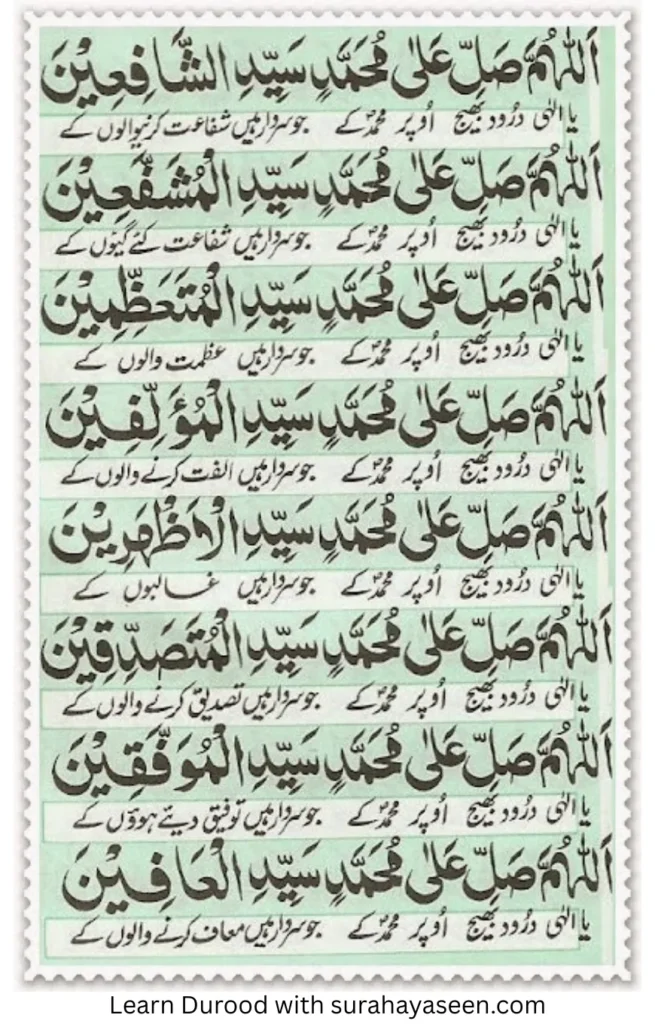 اَللّٰهُمَّ صَلِّ عَلٰی مُحَمَّدٍ سَیِّدِ الشَّافِعِیْنَ
یا الٰہی درود بھیج اُوپر محمدؐ کے جو سردار ہیں شفاعت کرنیوالوں کے
اَللّٰهُمَّ صَلِّ عَلٰی مُحَمَّدٍ سَیِّدِ الْمُشَفَّعِیْنَ
یا الٰہی درود بھیج اُوپر محمدؐ کے جو سردار ہیں شفاعت کئے گیوں کے
اَللّٰهُمَّ صَلِّ عَلٰی مُحَمَّدٍ سَیِّدِ الْمُتَعَظِّمِیْنَ
یا الٰہی درود بھیج اُوپر محمدؐ کے جو سردار ہیں عظمت والوں کے
اَللّٰهُمَّ صَلِّ عَلٰی مُحَمَّدٍ سَیِّدِ الْمُؤَلِّفِیْنَ
یا الٰہی درود بھیج اُوپر محمدؐ کے جو سردار ہیں الفت کرنے والوں کے
اَللّٰهُمَّ صَلِّ عَلٰی مُحَمَّدٍ سَیِّدِ الْاَظْهَرِیْنَ
یا الٰہی درود بھیج اُوپر محمدؐ کے جو سردار ہیں غالبوں کے
اَللّٰهُمَّ صَلِّ عَلٰی مُحَمَّدٍ سَیِّدِ الْمُتَصَدِّقِیْنَ
یا الٰہی درود بھیج اُوپر محمدؐ کے جو سردار ہیں تصدیق کرنے والوں کے
اَللّٰهُمَّ صَلِّ عَلٰی مُحَمَّدٍ سَیِّدِ الْمُوَفَّقِیْنَ
یا الٰہی درود بھیج اُوپر محمدؐ کے جو سردار ہیں توفیق دیئے ہوؤں کے
اَللّٰهُمَّ صَلِّ عَلٰی مُحَمَّدٍ سَیِّدِ الْعَافِیْنَ
یا الٰہی درود بھیج اُوپر محمدؐ کے جو سردار ہیں معاف کرنے والوں کے
Learn Durood with surahayaseen.com